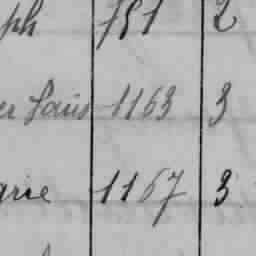 ph 751 2
er Louis 1163 3
arie 1167 3